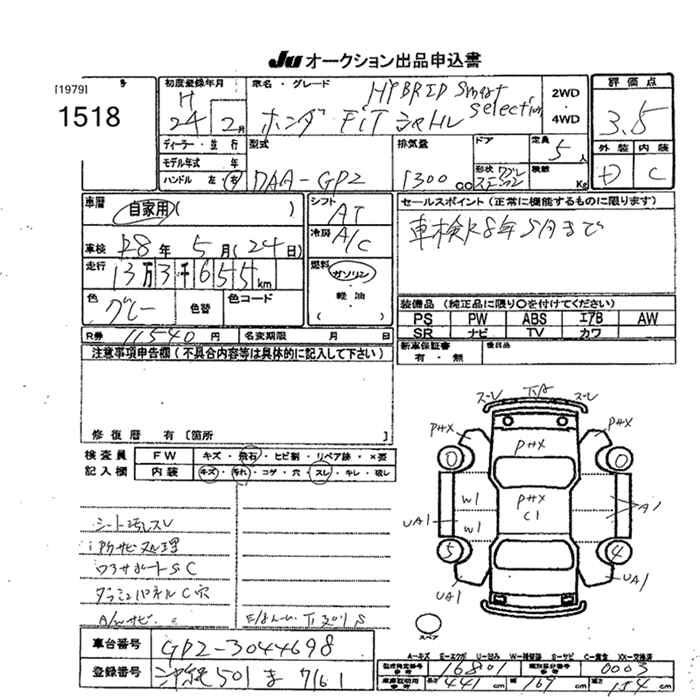 JU オークション出品申込書
[1979]
1518
初度登録年月
H
24 2月
車名・グレード
HYBRID Smart
selection
ホンダ FIT シャトル
2WD
・
4WD
評価点
3.5
外装 内装
D C
ディーラー・並行
モデル年式 年
ハンドル 左・右
型式
DAA-GP2
排気量
1300 cc
ドア
形状 ワゴン
定員 5人
積載 Kg
車歴
自家用( )
シフト
AT
冷房
A/C
車検 R8年5月(24日)
走行
13万3千655km
燃料
ガソリン
・
軽油
( )
色
グレー
色替
色コード
R券 11540円
名変期限 月 日
セールスポイント(正常に機能するものに限ります)
車検R8年5月まで
装備品(純正品に限り○を付けてください)
PS PW ABS エアB AW
SR ナビ TV カワ
新車保証書
有・無
後日品
注意事項申告欄(不具合内容等は具体的に記入して下さい)
修復歴 有〔箇所 〕
検査員 FW キズ・飛石・ヒビ割・リペア跡・×要
記入欄 内装 キズ・汚れ・コゲ・穴・スレ・キレ・
シート汚レスレ
サビ処理
コアサポートSC
C穴
サビ
ズレ
ズレ
PHX
PHX
PHX
0
0
W1
PHX
C1
A1
UA1
W1
5
4
UA1
UA1
スペア
車台番号 GP2-3044698
登録番号 沖縄 501 ま 7161
A-キズ E-エクボ U-凹み W-補修跡 S-サビ C-腐食 XX-交換済
型式指定番号 16801
類別区分番号 0003
長さ 441cm 幅 169cm 高さ 154cm